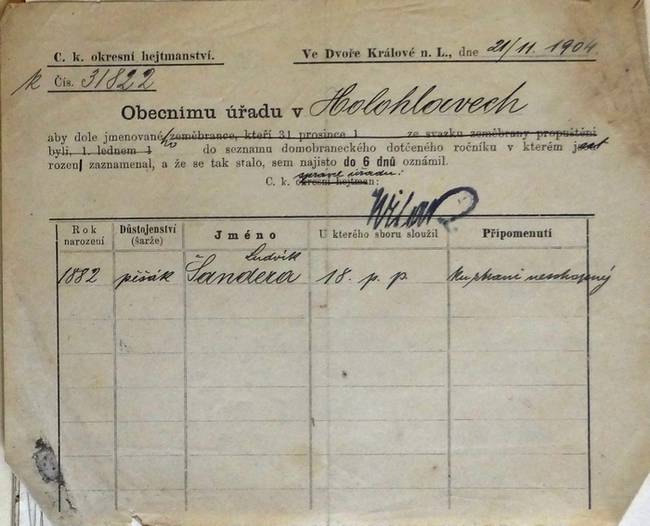 C. k. okresní hejtmanství. Ve Dvoře Králové n. L., dne 21/11. 1904.
k Čís. 31822
Obecnímu úřadu v Holohlavech
aby dole jmenované ho zeměbrance, kteří 31 prosince 1 ze svazku zeměbrany propuštěni
byli, 1. lednem 1 do seznamu domobraneckého dotčeného ročníku v kterém
rozen zaznamenal, a že se tak stalo, sem najisto do 6 dnů oznámil.
správce úřadu:
C. k. okresní hejtman:
Rok narození Důstojenství (šarže) Jméno U kterého sboru sloužil Připomenutí
Ludvík
1882 pěšák Šandera 18. p. p. neschopný